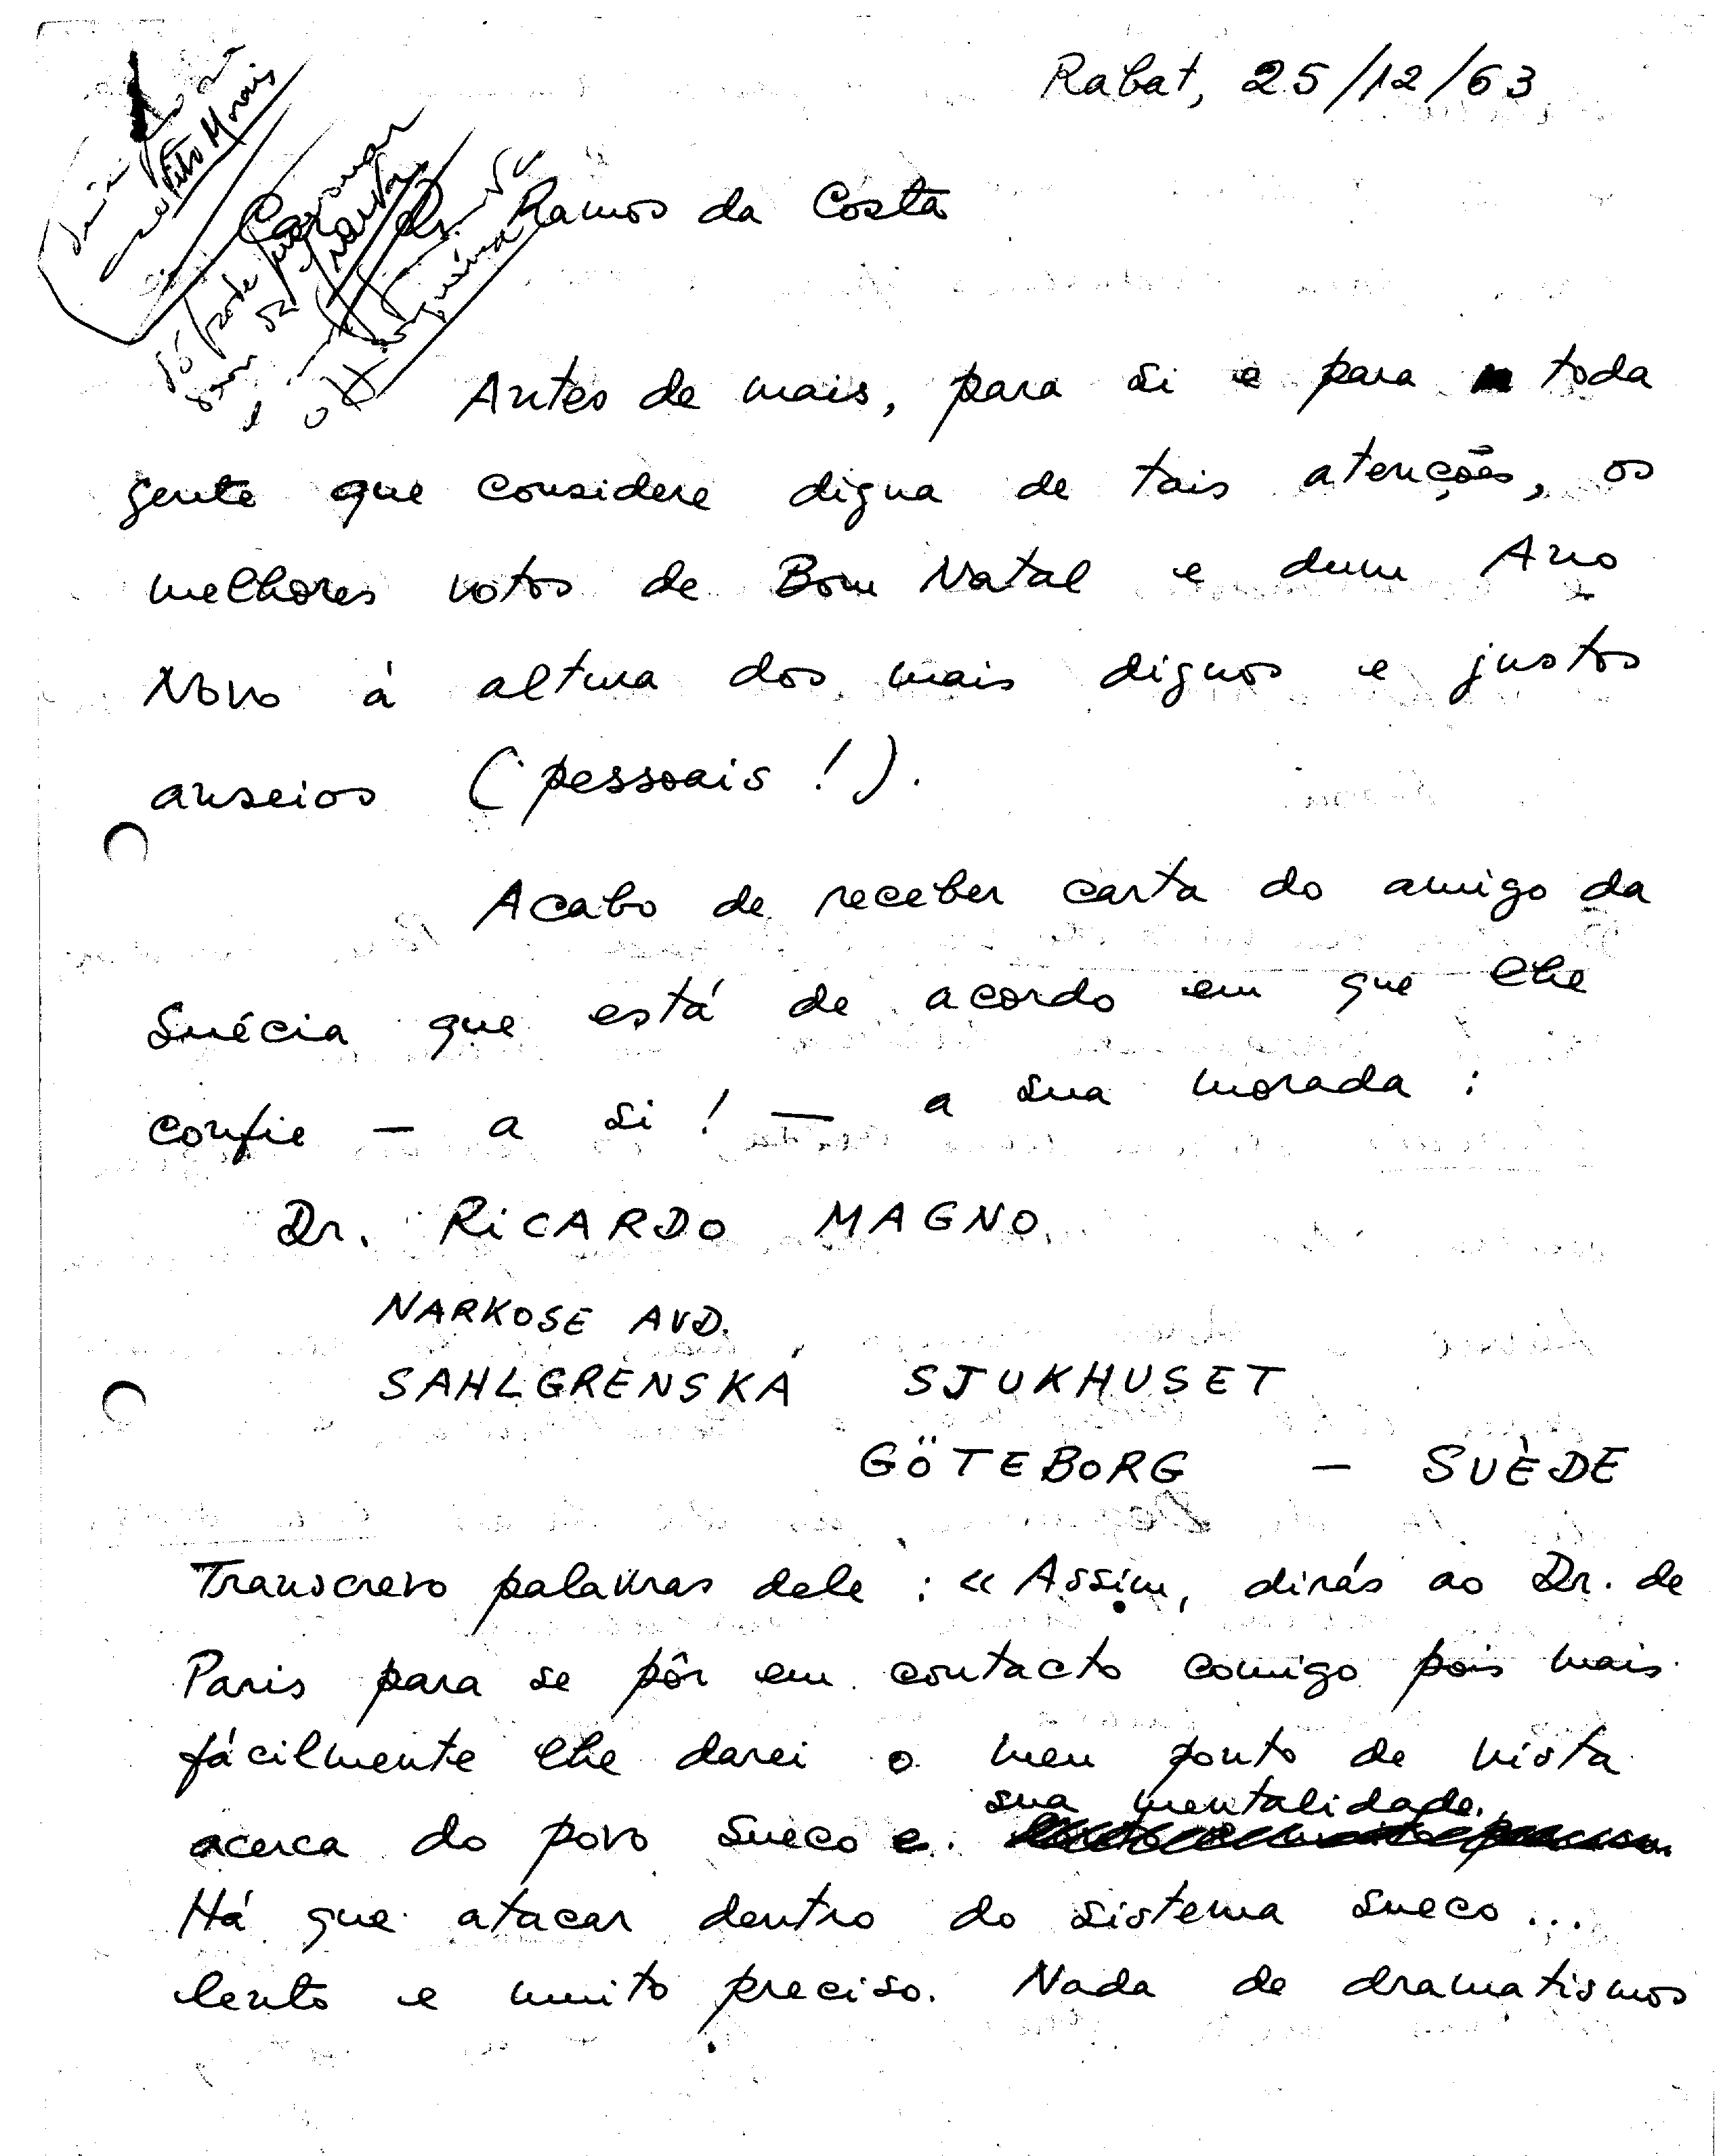 Rabat, 25/12/63
Tito Morais
só pode
Caro Dr. Ramos da Costa
Antes de mais, para si e para toda
gente que considere digna de tais atenções, os
melhores votos de Bom Natal e dum Ano
Novo á altura dos mais dignos e justos
anseios (pessoais!).
Acabo de receber carta do amigo da
Suécia que está de acordo em que lhe
confie — a si! — a sua morada:
Dr. RICARDO MAGNO
NARKOSE AVD.
SAHLGRENSKA SJUKHUSET
GÖTEBORG — SUÈDE
Transcrevo palavras dele: «Assim, dirás ao Dr. de
Paris para se pôr em contacto comigo pois mais
fácilmente lhe darei o meu ponto de vista
acerca do povo sueco e sua mentalidade.
Há que atacar dentro do sistema sueco...
lento e muito preciso. Nada de dramatismos